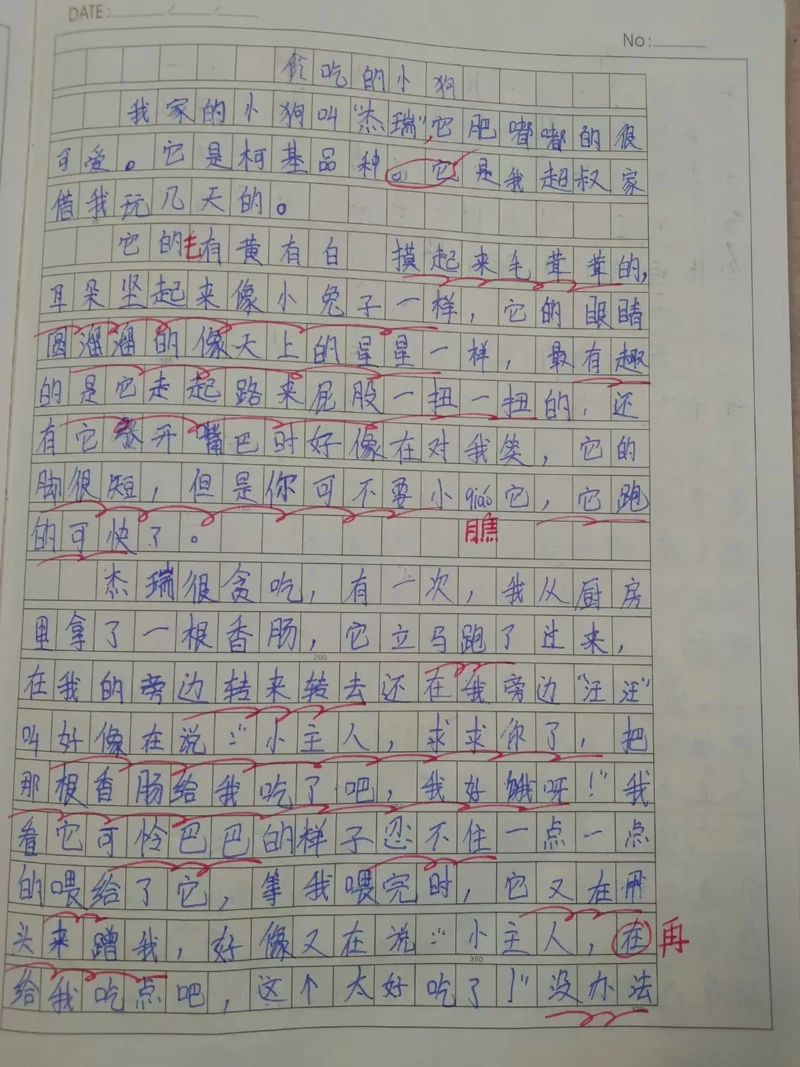 DATE:
No:
吃的小狗
我家的小狗叫“杰瑞”,它肥嘟嘟的很
可爱。它是柯基品种。它是我超叔家
借我玩几天的。
它的毛有黄有白 摸起来毛茸茸的,
耳朵坚起来像小兔子一样，它的眼睛
圆溜溜的像天上的星星一样，最有趣
的是它走起路来屁股一扭一扭的，还
有它张开嘴巴时好像在对我笑，它的
脚很短，但是你可不要小qiáo它，它跑
瞧
的可快了。
杰瑞很贪吃，有一次，我从厨房
里拿了一根香肠，它立马跑了过来，
在我的旁边转来转去还在我旁边“汪汪”
叫好像在说：“小主人，求求你了，把
那根香肠给我吃了吧，我好饿呀！”我
看它可怜巴巴的样子忍不住一点一点
的喂给了它，等我喂完时，它又在用
头来蹭我，好像又在说：“小主人，在 再
给我吃点吧，这个太好吃了！”没办法
100
200
300